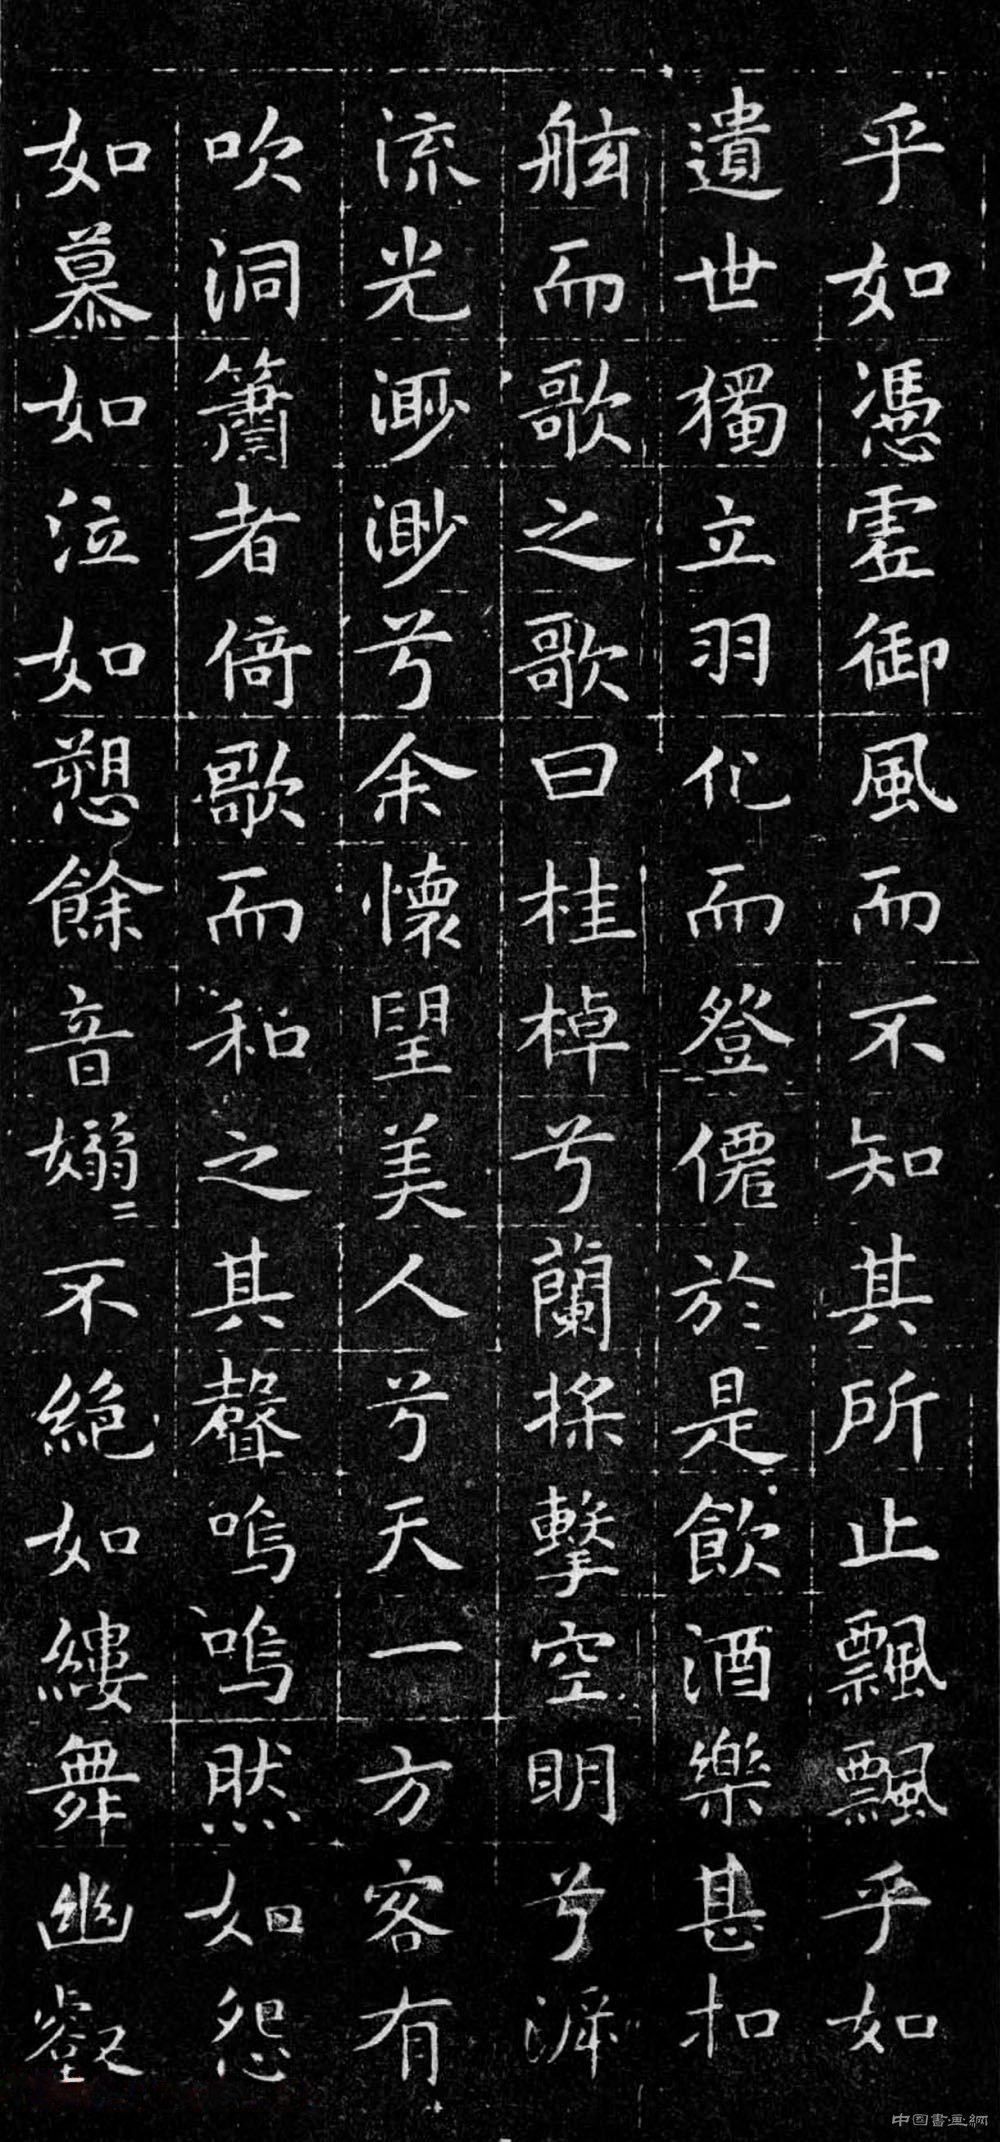 乎如憑虛御風而不知其所止飄飄乎如
遺世獨立羽化而登僊於是飲酒樂甚扣
舷而歌之歌曰桂棹兮蘭槳擊空明兮泝
流光渺渺兮余懷望美人兮天一方客有
吹洞簫者倚歌而和之其聲嗚嗚然如怨
如慕如泣如愬餘音嫋〻不絕如縷舞幽壑
中国書画網